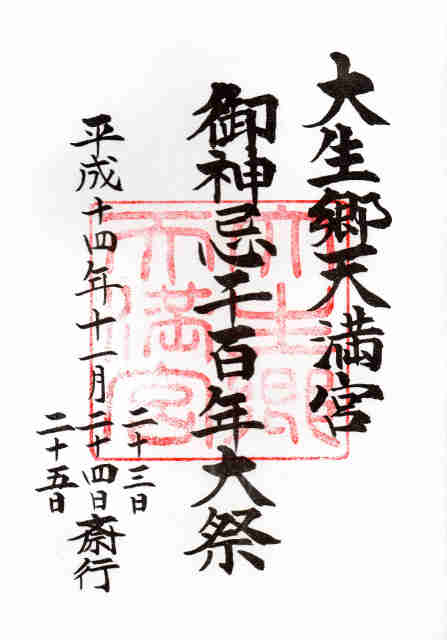 大生郷天満宮
御神忌千百年大祭
平成十四年十一月二十三日
二十四日斎行
二十五日
大生郷
天満宮